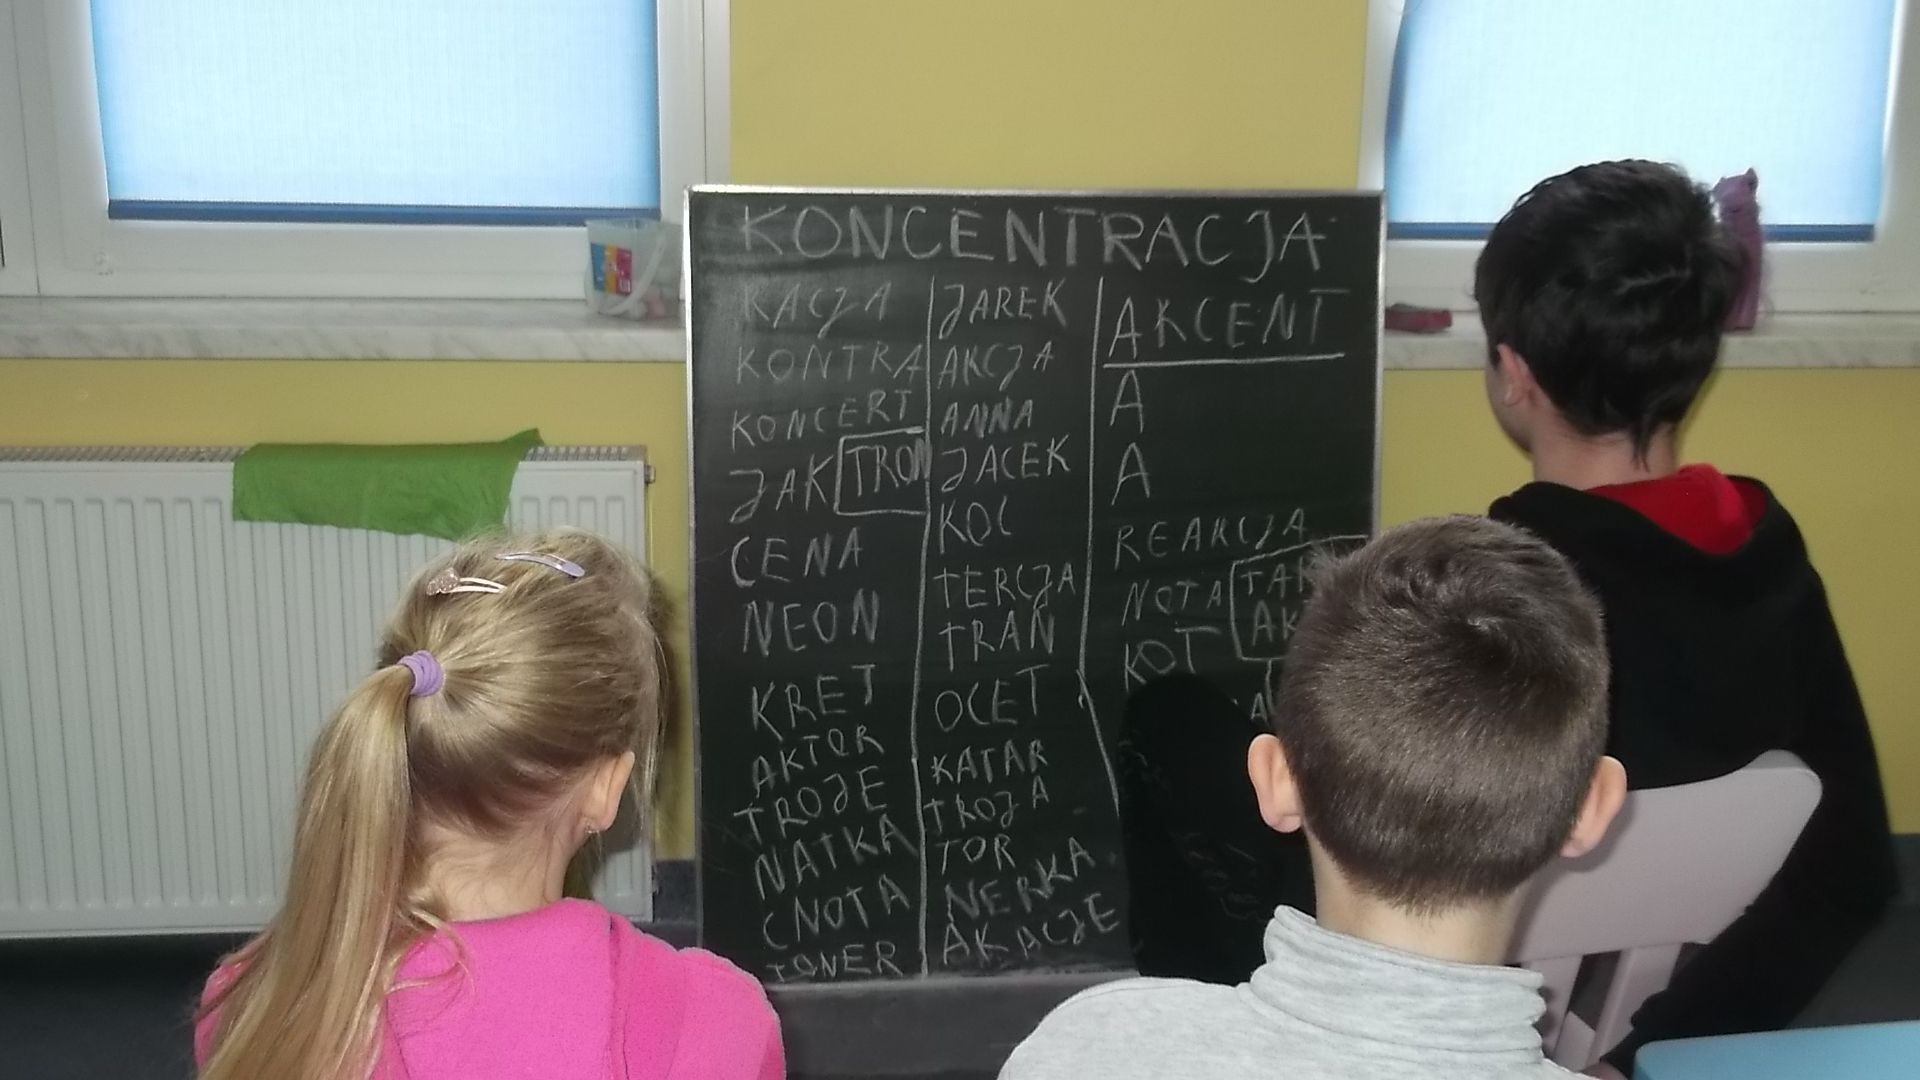 KONCENTRACJA
KACJA
KONTRA
KONCERT
JAK TRON
CENA
NEON
KRET
AKTOR
TROJE
NATKA
CNOTA
TONER
JAREK
AKCJA
ANNA
JACEK
KOC
TERCJA
TRAN
OCET
KATAR
TROJA
TOR
NERKA
AKACJE
AKCENT
A
A
REAKCJA
NOTA
KOT